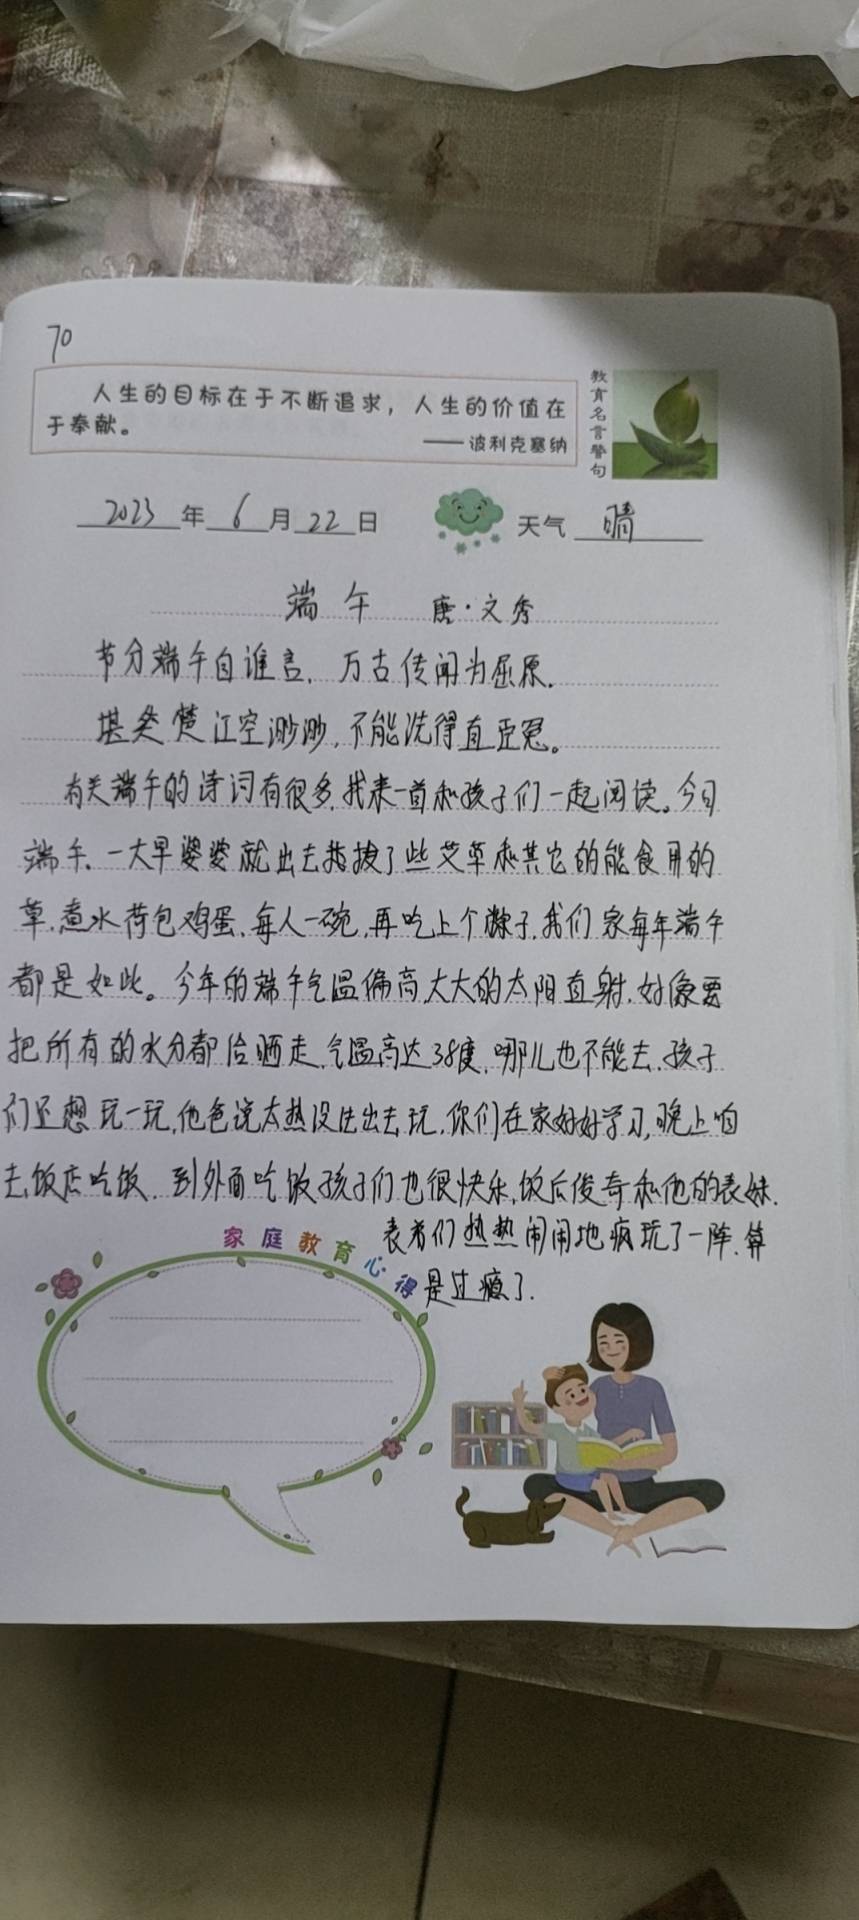 70
人生的目标在于不断追求，人生的价值在
于奉献。
——波利克塞纳
教育名言警句
2023年6月22日 天气 晴
端午 唐·文秀
节分端午自谁言，万古传闻为屈原。
堪笑楚江空渺渺，不能洗得直臣冤。
有关端午的诗词有很多，我来一首和孩子们一起阅读。今日
端午，一大早婆婆就出去拔了些艾草和其它的能食用的
草，煮水荷包鸡蛋，每人一碗，再吃上个粽子，我们家每年端午
都是如此。今年的端午气温偏高，大大的太阳直射，好像要
把所有的水分都给晒走，气温高达38度，哪儿也不能去，孩子
们还想玩一玩，他爸说太热没法出去玩，你们在家好好学习，晚上咱
去饭店吃饭，到外面吃饭孩子们也很快乐，饭后俊奇和他的表妹，
表弟们热热闹闹地疯玩了一阵，算
是过瘾了。
家庭教育心得